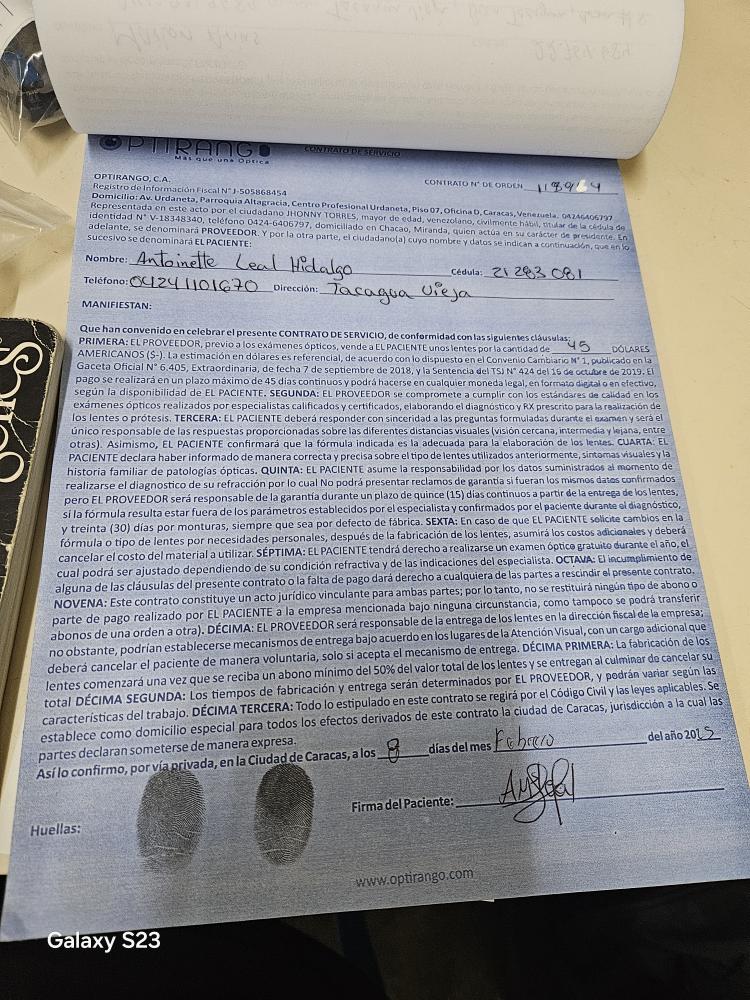 OPTIRANGO
Más que una Óptica
CONTRATO DE SERVICIO
OPTIRANGO, C.A.
CONTRATO N° DE ORDEN
Registro de Información Fiscal N° J-505868454
Domicilio: Av. Urdaneta, Parroquia Altagracia, Centro Profesional Urdaneta, Piso 07, Oficina D, Caracas, Venezuela. 04246406797
Representada en este acto por el ciudadano JHONNY TORRES, mayor de edad, venezolano, civilmente hábil, titular de la cédula de
identidad N° V-18348340, teléfono 0424-6406797, domiciliado en Chacao, Miranda, quien actúa en su carácter de presidente. En
adelante, se denominará PROVEEDOR. Y por la otra parte, el ciudadano(a) cuyo nombre y datos se indican a continuación, que en lo
sucesivo se denominará EL PACIENTE:
Nombre: Antoinette Leal Hidalgo Cédula: 21 283 081
Teléfono: 04241101670 Dirección: Tacagua Vieja
MANIFIESTAN:
Que han convenido en celebrar el presente CONTRATO DE SERVICIO, de conformidad con las siguientes cláusulas:
PRIMERA: EL PROVEEDOR, previo a los exámenes ópticos, vende a EL PACIENTE unos lentes por la cantidad de 45 DÓLARES
AMERICANOS ($-). La estimación en dólares es referencial, de acuerdo con lo dispuesto en el Convenio Cambiario N° 1, publicado en la
Gaceta Oficial N° 6.405, Extraordinaria, de fecha 7 de septiembre de 2018, y la Sentencia del TSJ N° 424 del 16 de octubre de 2019. El
pago se realizará en un plazo máximo de 45 días continuos y podrá hacerse en cualquier moneda legal, en formato digital o en efectivo,
según la disponibilidad de EL PACIENTE. SEGUNDA: EL PROVEEDOR se compromete a cumplir con los estándares de calidad en los
exámenes ópticos realizados por especialistas calificados y certificados, elaborando el diagnóstico y RX prescrito para la realización de
los lentes o prótesis. TERCERA: EL PACIENTE deberá responder con sinceridad a las preguntas formuladas durante el examen y será el
único responsable de las respuestas proporcionadas sobre las diferentes distancias visuales (visión cercana, intermedia y lejana, entre
otras). Asimismo, EL PACIENTE confirmará que la fórmula indicada es la adecuada para la elaboración de los lentes. CUARTA: EL
PACIENTE declara haber informado de manera correcta y precisa sobre el tipo de lentes utilizados anteriormente, síntomas visuales y la
historia familiar de patologías ópticas. QUINTA: EL PACIENTE asume la responsabilidad por los datos suministrados al momento de
realizarse el diagnostico de su refracción por lo cual No podrá presentar reclamos de garantía si fueran los mismos datos confirmados
pero EL PROVEEDOR será responsable de la garantía durante un plazo de quince (15) días continuos a partir de la entrega de los lentes,
si la fórmula resulta estar fuera de los parámetros establecidos por el especialista y confirmados por el paciente durante el diagnóstico,
y treinta (30) días por monturas, siempre que sea por defecto de fábrica. SEXTA: En caso de que EL PACIENTE solicite cambios en la
fórmula o tipo de lentes por necesidades personales, después de la fabricación de los lentes, asumirá los costos adicionales y deberá
cancelar el costo del material a utilizar. SÉPTIMA: EL PACIENTE tendrá derecho a realizarse un examen óptico gratuito durante el año, el
cual podrá ser ajustado dependiendo de su condición refractiva y de las indicaciones del especialista. OCTAVA: El incumplimiento de
alguna de las cláusulas del presente contrato o la falta de pago dará derecho a cualquiera de las partes a rescindir el presente contrato.
NOVENA: Este contrato constituye un acto jurídico vinculante para ambas partes; por lo tanto, no se restituirá ningún tipo de abono o
parte de pago realizado por EL PACIENTE a la empresa mencionada bajo ninguna circunstancia, como tampoco se podrá transferir
abonos de una orden a otra). DÉCIMA: EL PROVEEDOR será responsable de la entrega de los lentes en la dirección fiscal de la empresa;
no obstante, podrían establecerse mecanismos de entrega bajo acuerdo en los lugares de la Atención Visual, con un cargo adicional que
deberá cancelar el paciente de manera voluntaria, solo si acepta el mecanismo de entrega. DÉCIMA PRIMERA: La fabricación de los
lentes comenzará una vez que se reciba un abono mínimo del 50% del valor total de los lentes y se entregan al culminar de cancelar su
total DÉCIMA SEGUNDA: Los tiempos de fabricación y entrega serán determinados por EL PROVEEDOR, y podrán variar según las
características del trabajo. DÉCIMA TERCERA: Todo lo estipulado en este contrato se regirá por el Código Civil y las leyes aplicables. Se
establece como domicilio especial para todos los efectos derivados de este contrato la ciudad de Caracas, jurisdicción a la cual las
partes declaran someterse de manera expresa.
Así lo confirmo, por vía privada, en la Ciudad de Caracas, a los 8 días del mes Febrero del año 2025
Huellas:
Firma del Paciente:
www.optirango.com
Galaxy S23